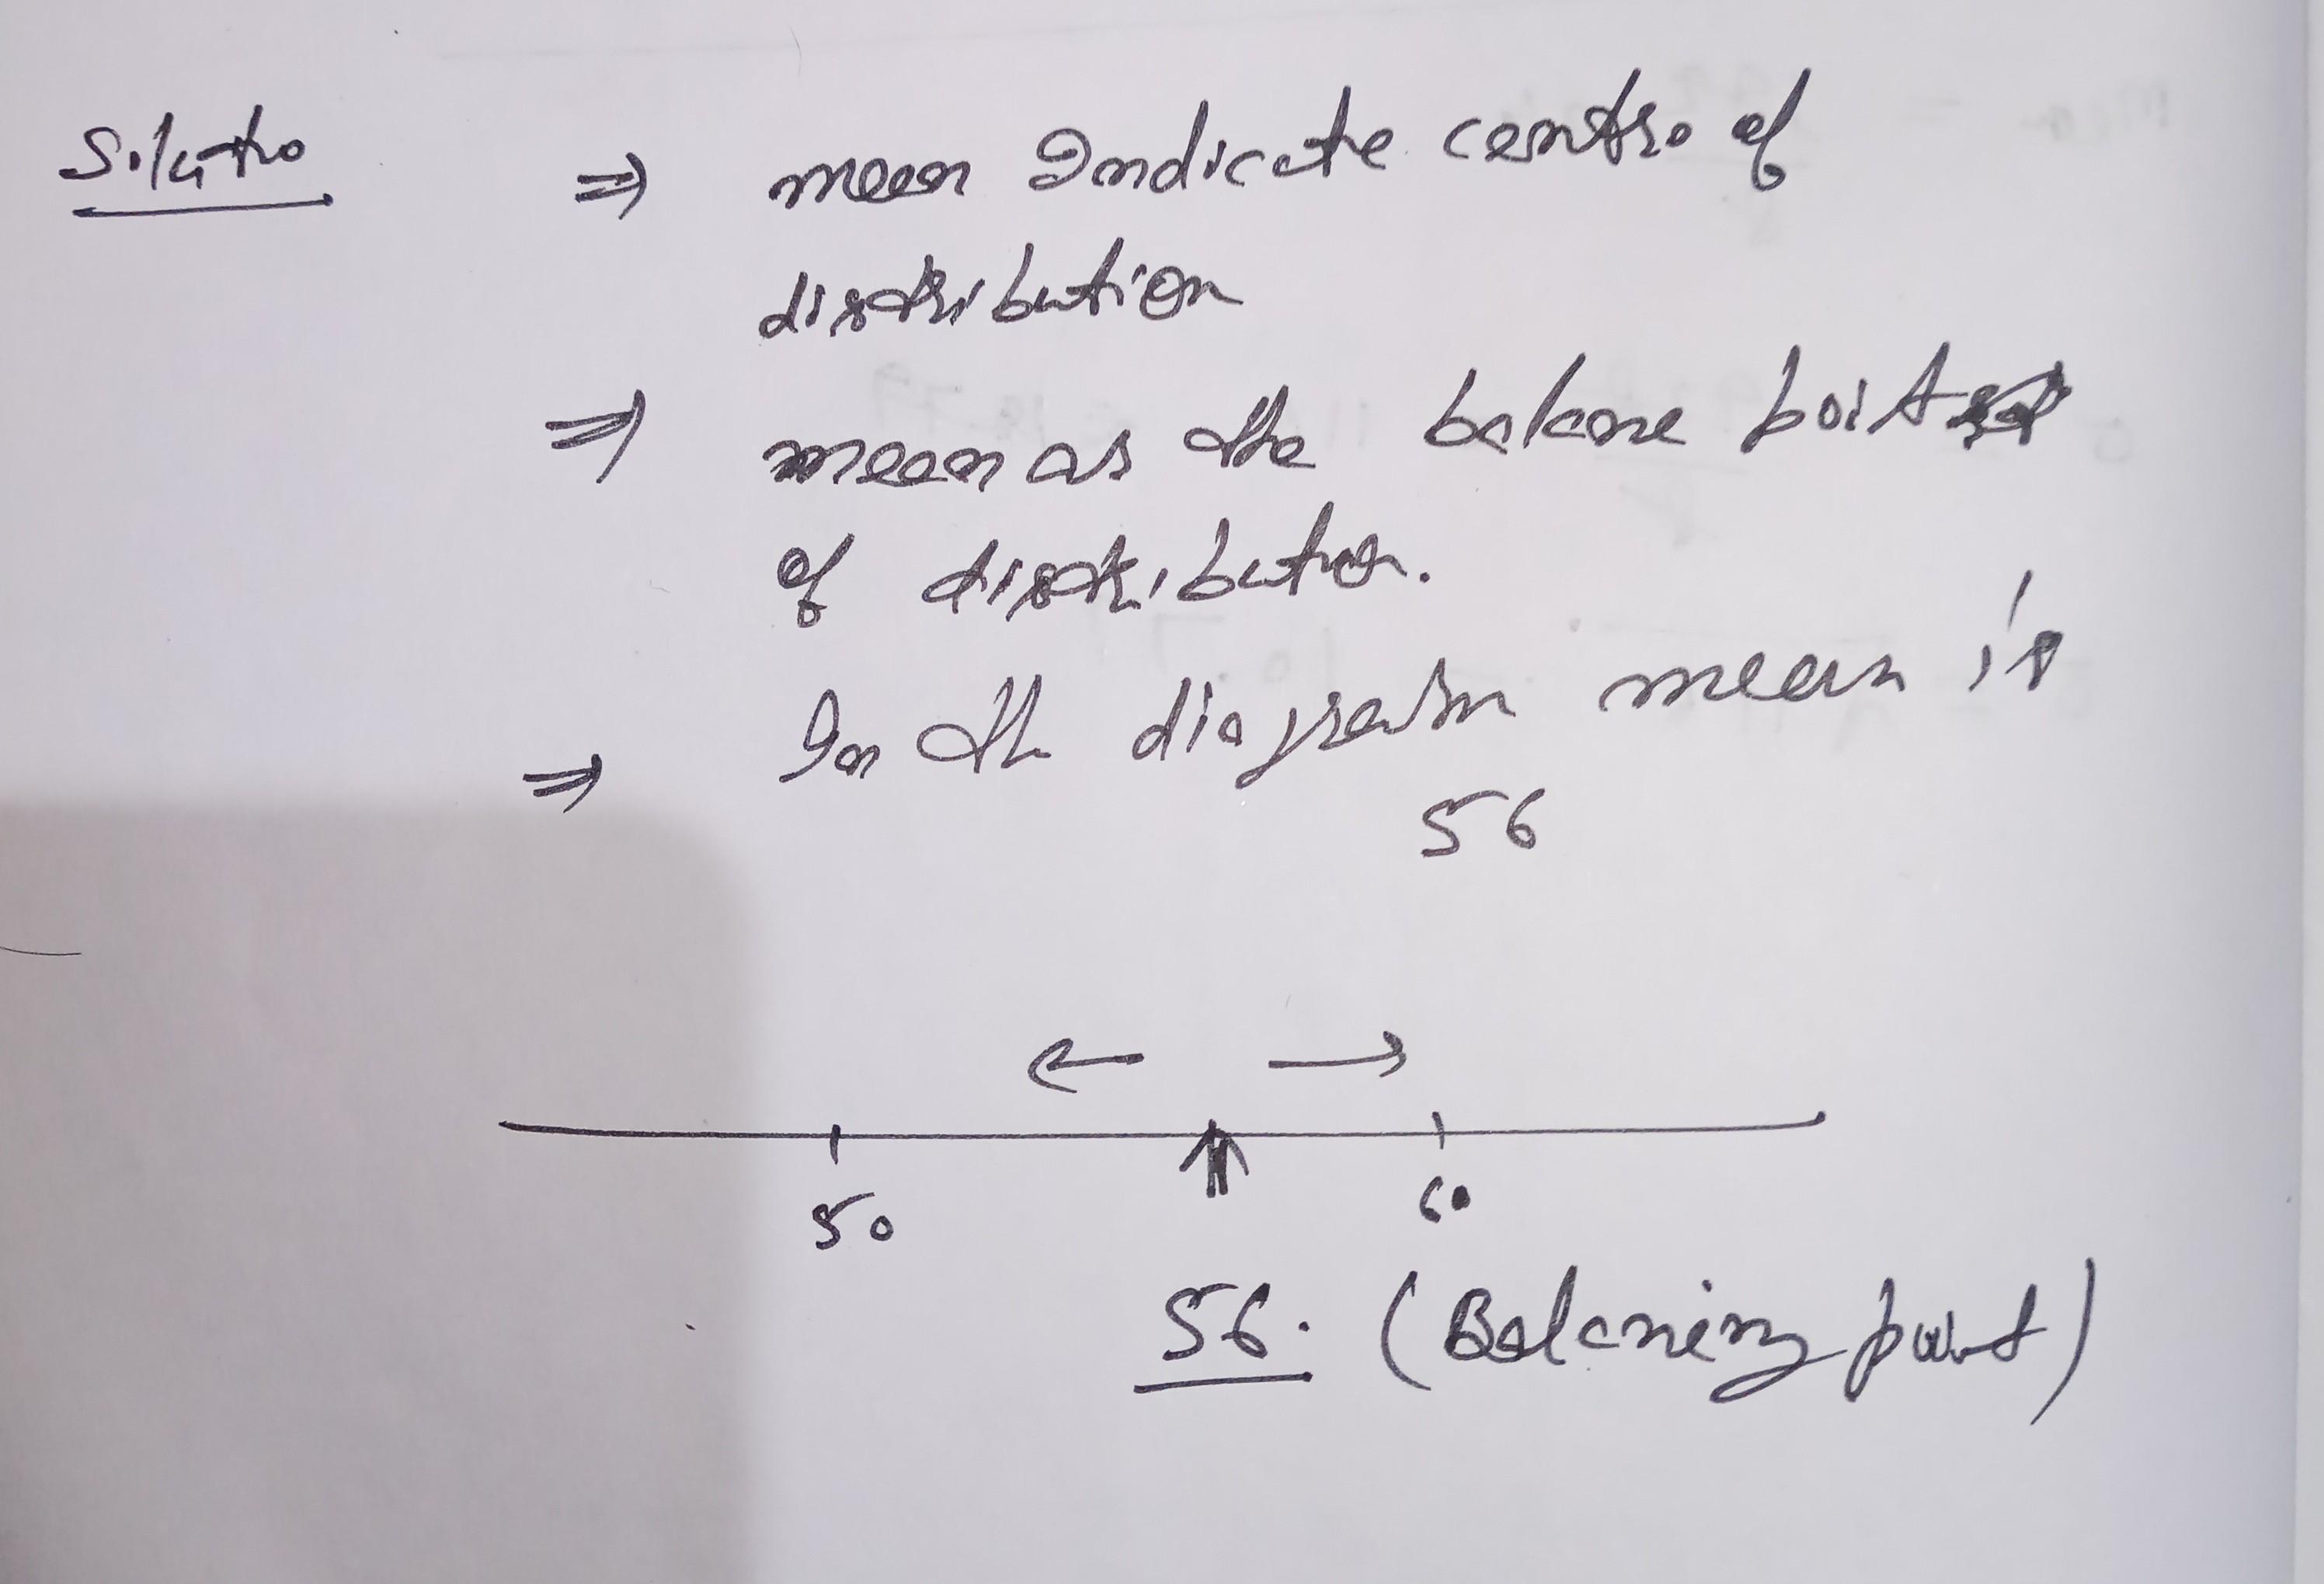 Solutio
⇒ mean Indicate centre of
distribution
⇒ mean as the balance point
of distribution.
⇒ In the diagram mean is
56
← →
50 60
56. (Balancing point)